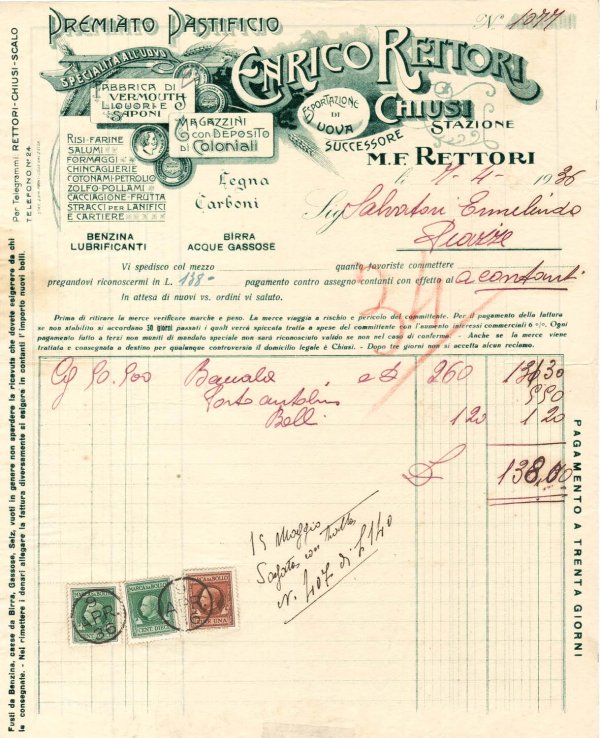 PREMIATO PASTIFICIO
Nº 1077
SPECIALITÀ ALL'UOVO
ENRICO RETTORI
CHIUSI
STAZIONE
FABBRICA DI
VERMOUTH
LIQUORI E
SAPONI
ESPORTAZIONE
DI
UOVA
SUCCESSORE
M.F. RETTORI
MAGAZZINI
CON DEPOSITO
DI COLONIALI
RISI-FARINE
SALUMI
FORMAGGI
CHINCAGLIERIE
COTONAMI-PETROLIO
ZOLFO-POLLAMI
CACCIAGIONE-FRUTTA
STRACCI PER LANIFICI
E CARTIERE
Legna
Carboni
BENZINA
LUBRIFICANTI
BIRRA
ACQUE GASSOSE
li 7-4-1936
Sig Salvatori Ermelinda
Piazze
Vi spedisco col mezzo quanto favoriste commettere
pregandovi riconoscermi in L. 138- pagamento contro assegno contanti con effetto a contanti
In attesa di nuovi vs. ordini vi saluto.
Prima di ritirare la merce verificare marche e peso. La merce viaggia a rischio e pericolo del committente. Per il pagamento della fattura
se non stabilito si accordano 30 giorni passati i quali verrà spiccata tratta a spese del committente con l'aumento interessi commerciali 6 o/o. Ogni
pagamento fatto a terzi non muniti di mandato speciale non sarà riconosciuto valido se non nel caso di conferma - Anche se la merce viene
trattata e consegnata a destino per qualunque controversia il domicilio legale è Chiusi. - Dopo tre giorni non si accetta alcun reclamo.
260
Porto
Bolli 120 1 20
£ 138,00
15 Maggio
N. 407 di £ 140
MARCA DA BOLLO
MARCA DA BOLLO
CENT. DIECI
MARCA DA BOLLO
LIRE UNA
PAGAMENTO A TRENTA GIORNI
Per Telegrammi: RETTORI-CHIUSI-SCALO
TELEFONO N° 24
Fusti da Benzina, casse da Birra, Gassose, Selz, vuoti in genere non sperdere la ricevuta che dovete esigerere da chi
le consegnate. - Nel rimettere i denari allegare la fattura diversamente si esigerà in contanti l'importo nuovi bolli.